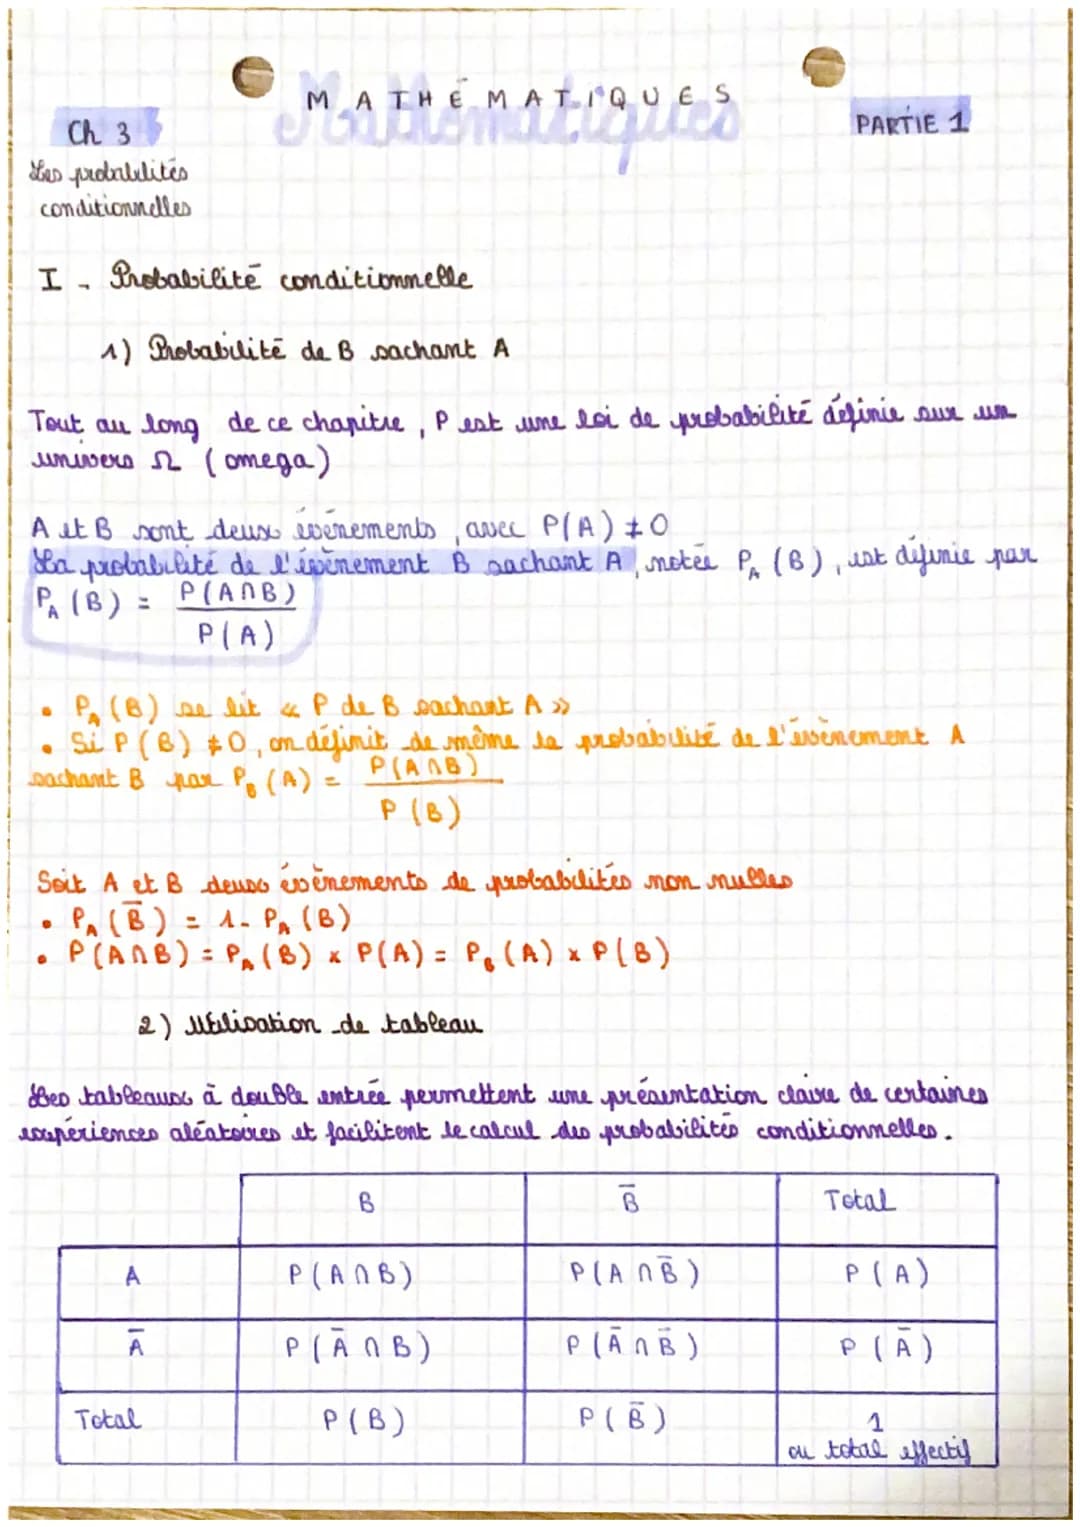 MATHÉMATIQUES
Mathématiques
Ch 3
PARTIE 1
Les probabilités
conditionnelles
I - Probabilité conditionnelle
1) Probabilité de B sachant A
Tout au long de ce chapitre, P est une loi de probabilité définie sur un
univers Ω (omega)
A et B sont deux évènements, avec P(A) ≠ 0
La probabilité de l'évènement B sachant A, notée P_A (B), est définie par
P_A (B) = P(A∩B) / P(A)
• P_A (B) se lit « P de B sachant A »
• Si P(B) ≠ 0, on définit de même la probabilité de l'évènement A
sachant B par P_B (A) = P(A∩B) / P(B)
Soit A et B deux évènements de probabilités non nulles
• P_A (B̅) = 1 - P_A (B)
• P(A∩B) = P_A (B) × P(A) = P_B (A) × P(B)
2) Utilisation de tableau
Les tableaux à double entrée permettent une présentation claire de certaines
expériences aléatoires et facilitent le calcul des probabilités conditionnelles.
B B̅ Total
A P(A∩B) P(A∩B̅) P(A)
A̅ P(A̅∩B) P(A̅∩B̅) P(A̅)
Total P(B) P(B̅) 1
ou total effectif